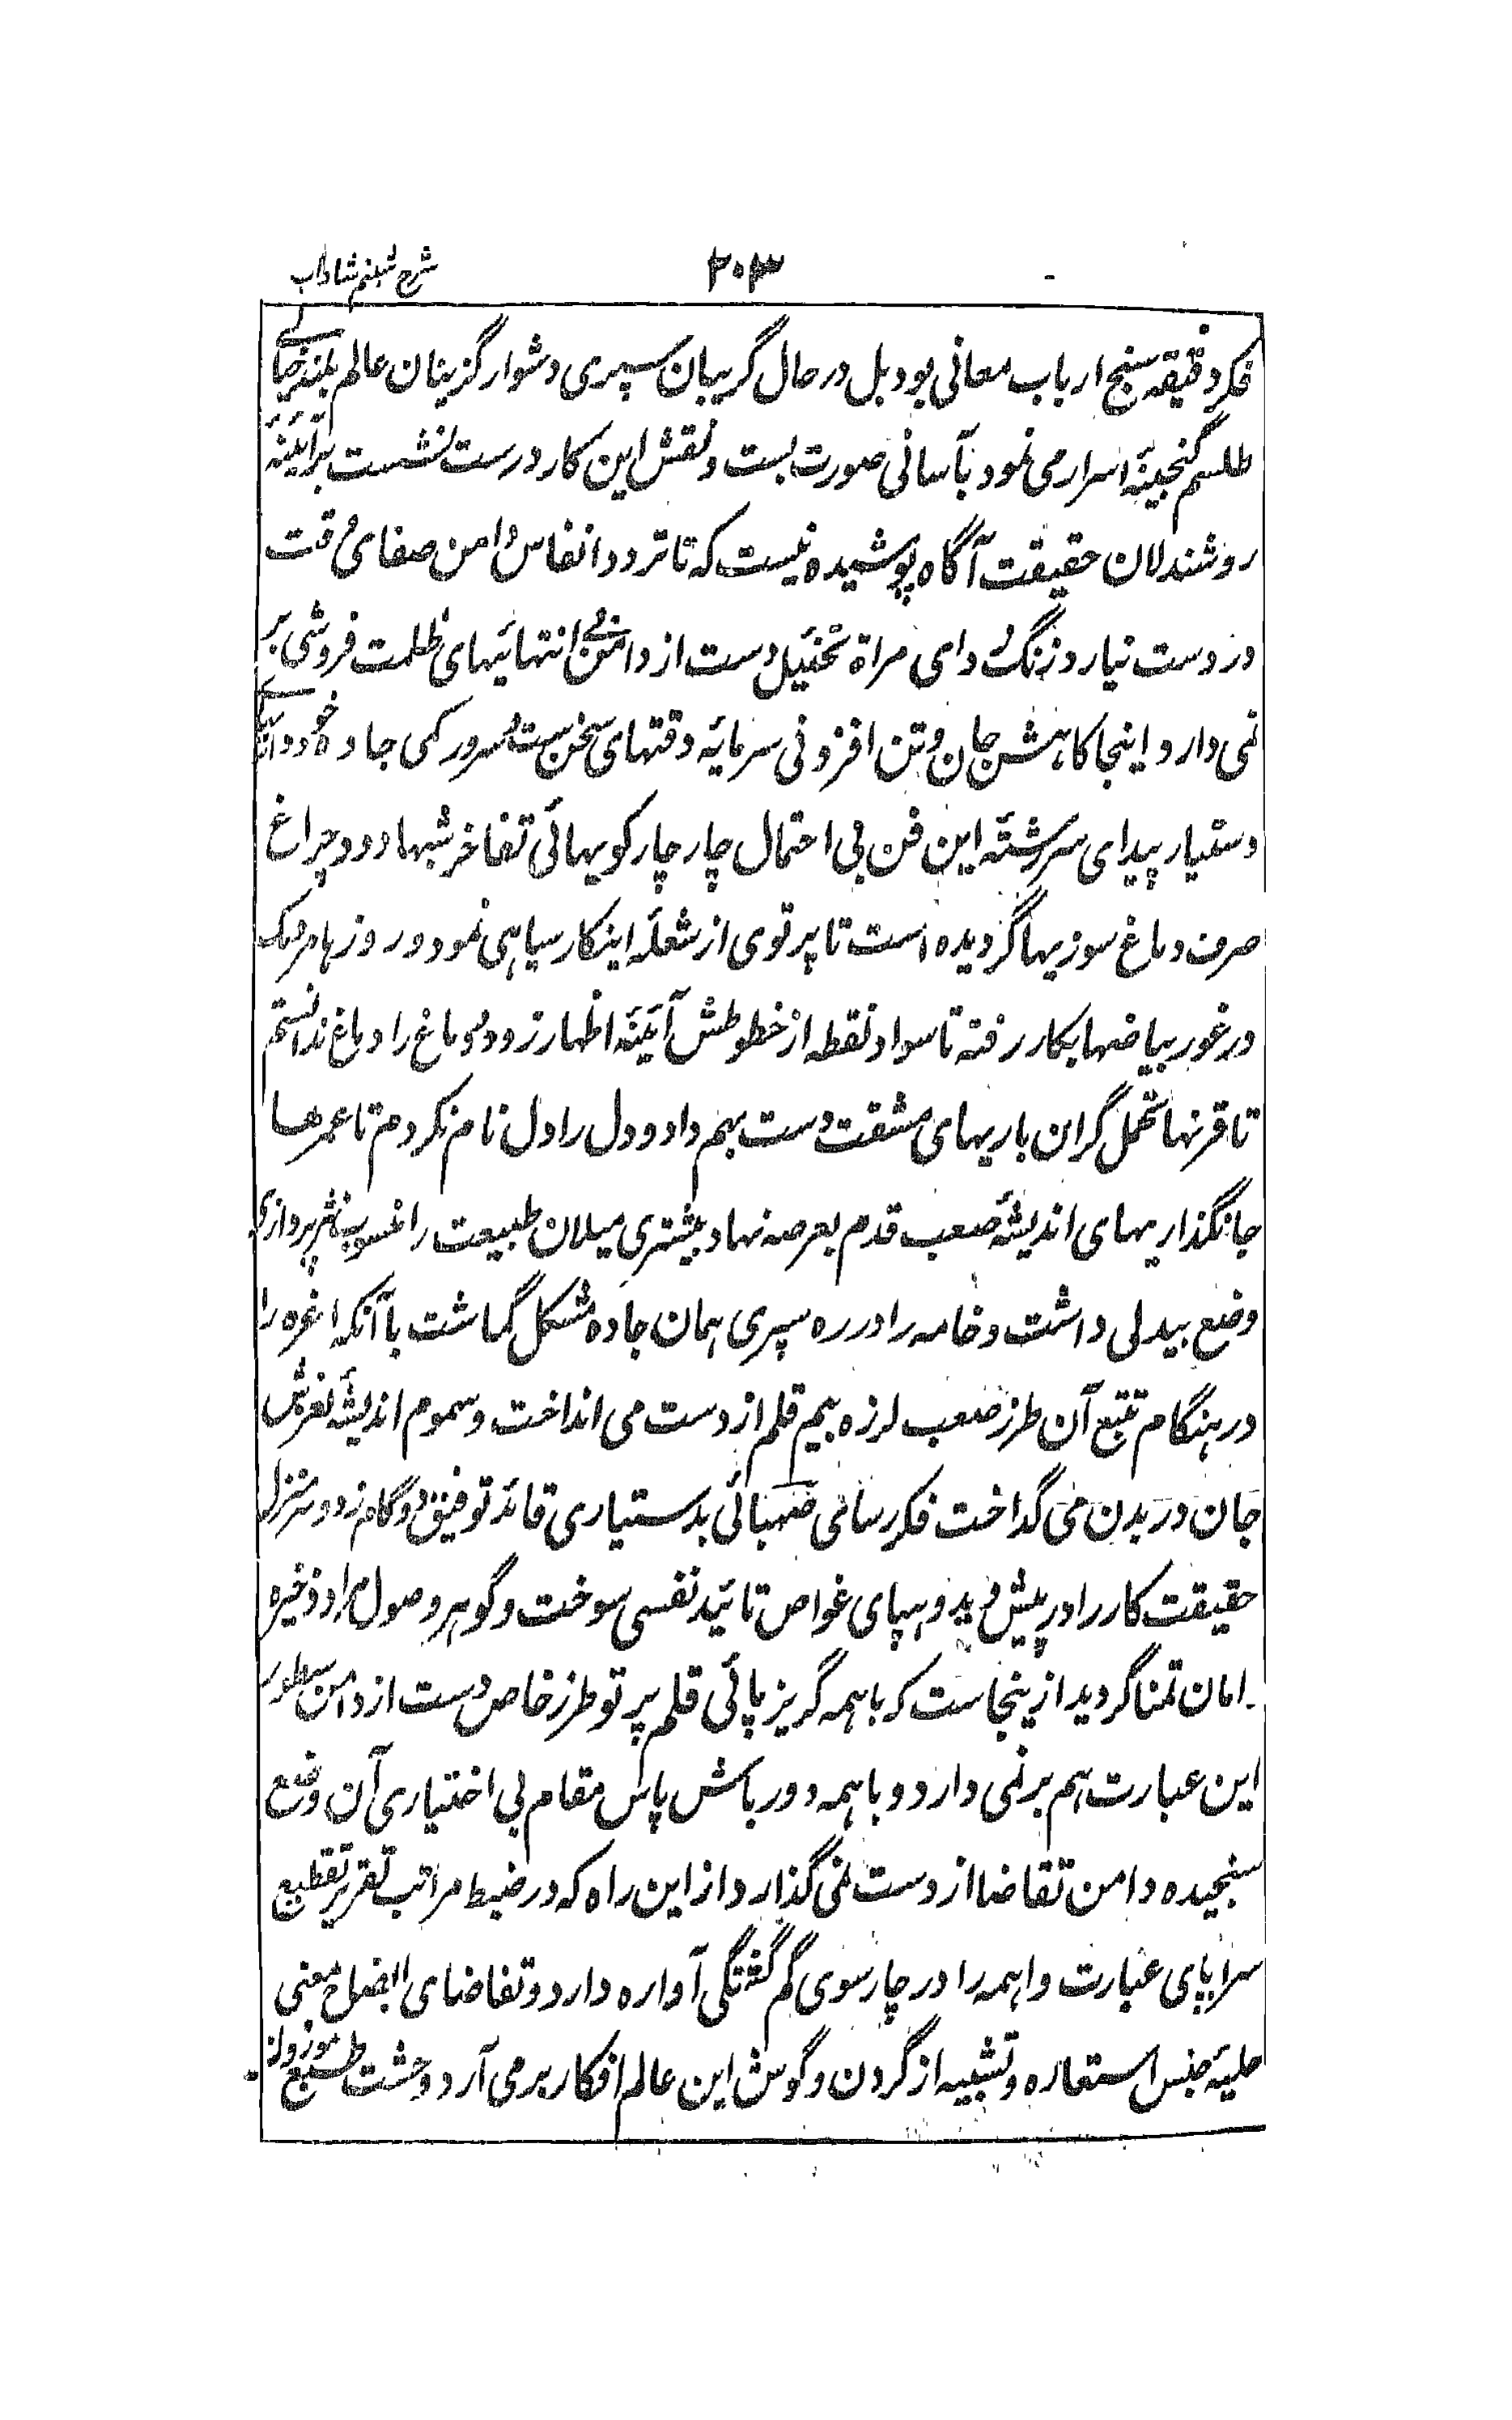 شرح شبنم شاداب
۲۰۳
فکر دقیقه سنج ارباب معانی بود بل در حال گریبان سپری دشوار گزینان عالم بلند خیالی
طلسم گنجینۂ اسرار می نمود بآسانی صورت بست و نقش این کار درست نشست بر آئینۂ
روشندلان حقیقت آگاه پوشیده نیست که تا تردد انفاس دامن صفای وقت
در دست نیارد زنگ دای مرآة تخئیل دست از دامن انتهائیهای ظلمت فروشی بر
نمی دارد اینجا کاهش جان و تن افزونی سرمایۂ دقتهای سخن ست و سرور کمی جاده خود
دستیار پیدای سررشتۂ این فن بی احتمال چار چار کویهائی تفاخر شبها دود چراغ
صرف دماغ سوزیها گردیده است تا پرتوی از شعلۂ اینکار سیاهی نمود و روزها مردمک
در غور بیاضها بکار رفته تا سواد نقطه از خطوطش آئینۂ اظهار زدود و دماغ را دماغ ندانستم
تا قرنها تحمل گران باریهای مشقت دست بهم داد و دل را دل نام نکردم تا عمرها
جانگذاریهای اندیشۂ صعب قدم بعرصه نهاد بیشتری میلان طبیعت را منسوب نثر پردازی
وضع بیدلی داشت و خامه را در ره سپری همان جاده مشکل گماشت با آنکه اغره را
در هنگام تتبع آن طرز صعب لرزه بیم قلم از دست می انداخت و سموم اندیشۂ لغزش
جان در بدن می گداخت فکر رسای صهبائی بدستیاری قائد توفیق دو گام زد و سر منزل
حقیقت کار را در پیش دید و بپای غواص تائید نفسی سوخت و گوهر وصول مراد ذخیره
امان تمنا گردید ازینجاست که باهمه گریز پائی قلم پرتو طرز خاص دست از دامن سطور
این عبارت هم بر نمی دارد و باهمه دور باش پاس مقام بی اختیاری آن وضع
سنجیده دامن تقاضا از دست نمی گذارد از این راه که در ضبط مراتب تقریر تقطیع
سراپای عبارت واهمه را در چار سوی گم گشتگی آواره دارد و تقاضای ایضاح معنی
حلیۂ جنس استعاره و تشبیه از گردن و گوش این عالم افکار بر می آرد وحشت طبع موزون